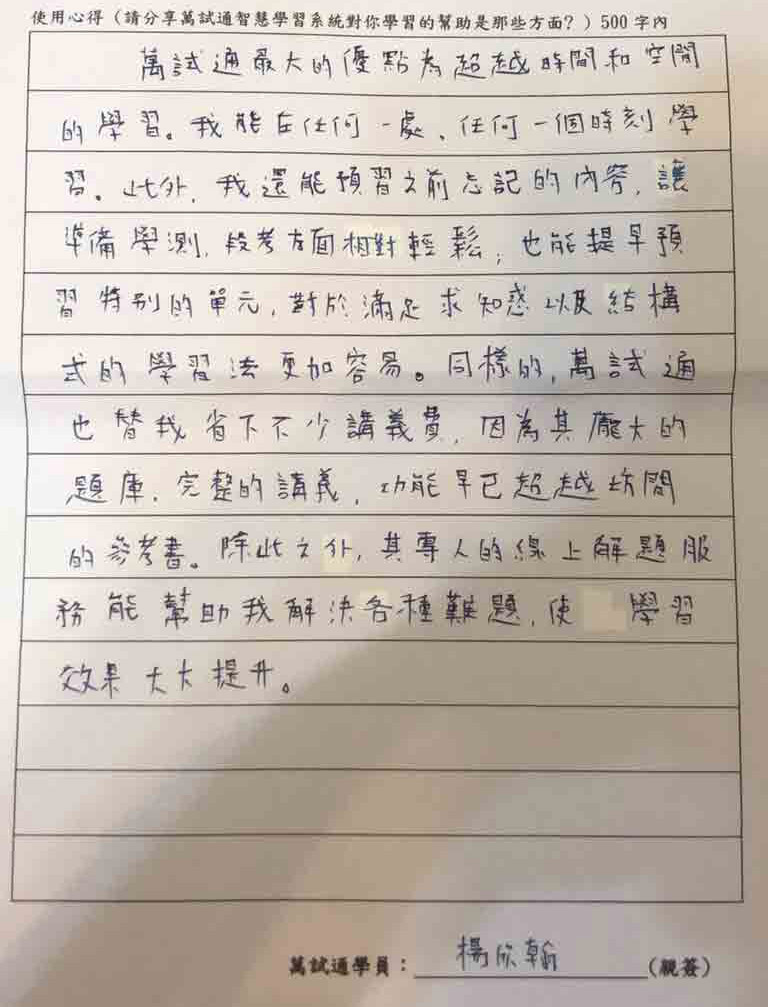 使用心得（請分享萬試通智慧學習系統對你學習的幫助是那些方面？）500 字內
萬試通最大的優點為超越時間和空間
的學習。我能在任何一處、任何一個時刻學
習。此外，我還能預習之前忘記的內容，讓
準備學測，段考方面相對輕鬆；也能提早預
習特別的單元，對於滿足求知惑以及結構
式的學習法更加容易。同樣的，萬試通
也替我省下不少講義費，因為其龐大的
題庫、完整的講義，功能早已超越坊間
的參考書。除此之外，其專人的線上解題服
務能幫助我解決各種難題，使 學習
效果大大提升。
萬試通學員：楊欣翰(親簽)